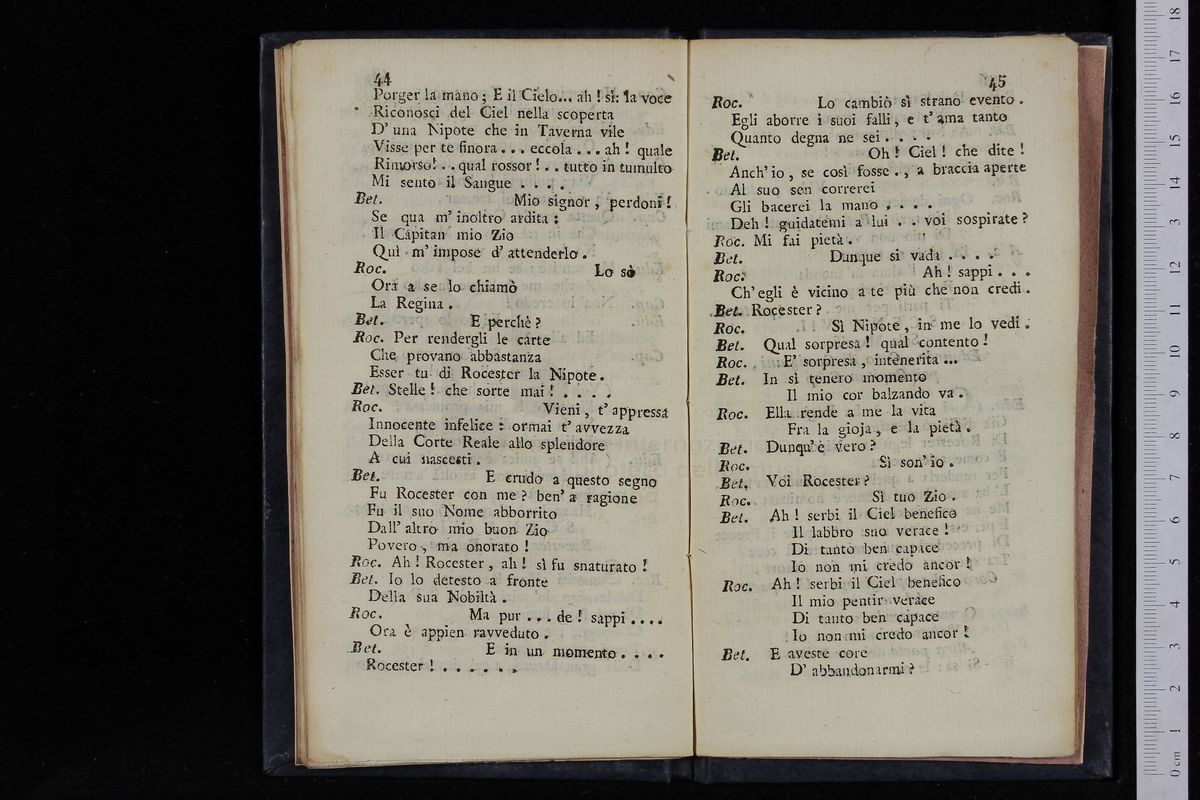 44
Porger la mano; E il Cielo... ah! sì: la voce
Riconosci del Ciel nella scoperta
D' una Nipote che in Taverna vile
Visse per te finora... eccola... ah! quale
Rimorso!.. qual rossor!.. tutto in tumulto
Mi sento il Sangue....
Bet. Mio signor, perdoni!
Se qua m' inoltro ardita:
Il Capitan mio Zio
Quì m' impose d' attenderlo.
Roc. Lo sò
Ora a se lo chiamò
La Regina.
Bet. E perchè?
Roc. Per rendergli le carte
Che provano abbastanza
Esser tu di Rocester la Nipote.
Bet. Stelle! che sorte mai!....
Roc. Vieni, t' appressa
Innocente infelice: ormai t' avvezza
Della Corte Reale allo splendore
A cui nascesti.
Bet. E crudo a questo segno
Fu Rocester con me? ben' a ragione
Fu il suo Nome abborrito
Dall' altro mio buon Zio
Povero, ma onorato!
Roc. Ah! Rocester, ah! sì fu snaturato!
Bet. Io lo detesto a fronte
Della sua Nobiltà.
Roc. Ma pur... de! sappi....
Ora è appien ravveduto.
Bet. E in un momento....
Rocester!......
45
Roc. Lo cambiò sì strano evento.
Egli aborre i suoi falli, e t' ama tanto
Quanto degna ne sei....
Bet. Oh! Ciel! che dite!
Anch' io, se così fosse., a braccia aperte
Al suo sen correrei
Gli bacerei la mano....
Deh! guidatemi a lui.. voi sospirate?
Roc. Mi fai pietà.
Bet. Dunque si vada....
Roc. Ah! sappi...
Ch' egli è vicino a te più che non credi.
Bet. Rocester?
Roc. Sì Nipote, in me lo vedi.
Bet. Qual sorpresa! qual contento!
Roc. E' sorpresa, intenerita...
Bet. In sì tenero momento
Il mio cor balzando va.
Roc. Ella rende a me la vita
Fra la gioja, e la pietà.
Bet. Dunqu' è vero?
Roc. Sì son' io.
Bet. Voi Rocester?
Roc. Sì tuo Zio.
Bet. Ah! serbi il Ciel benefico
Il labbro suo verace!
Di tanto ben capace
Io non mi credo ancor!
Roc. Ah! serbi il Ciel benefico
Il mio pentir verace
Di tanto ben capace
Io non mi credo ancor!
Bet. E aveste core
D' abbandonarmi?